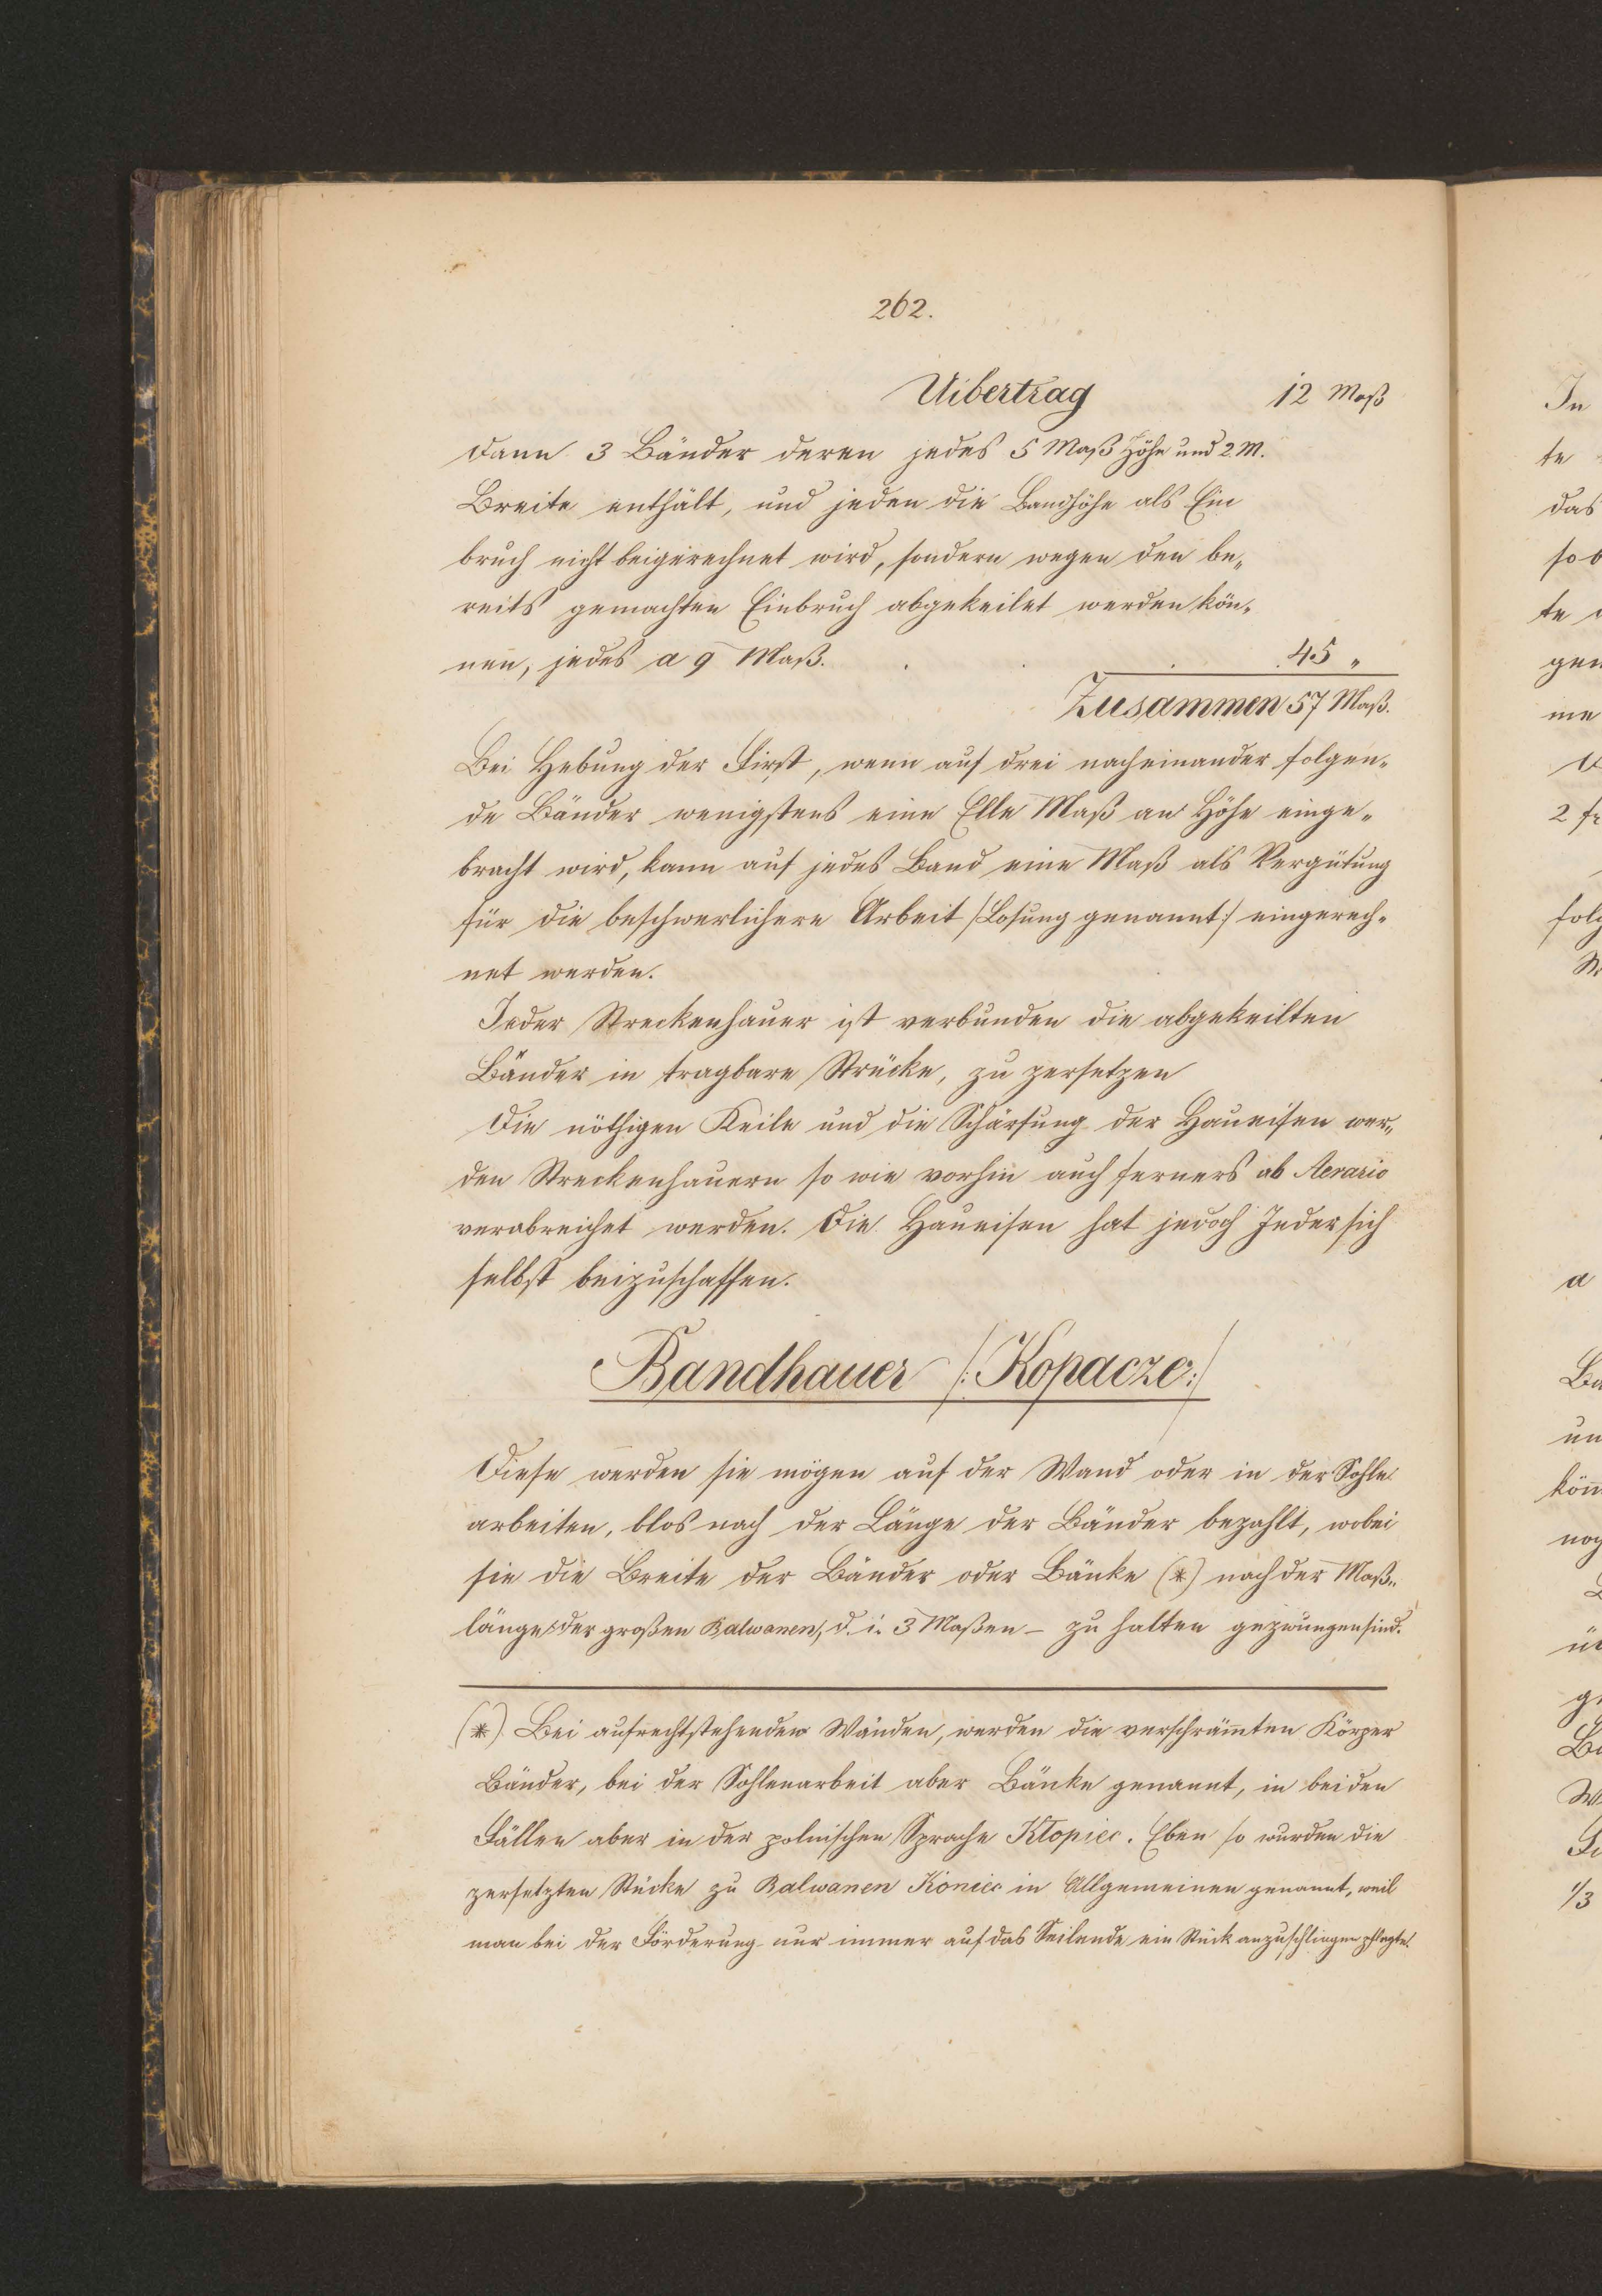 262.
Uibertrag 12 Maß
dann 3 Bänder deren jedes 5 Maß Höhe und 2 M.
Breite enthält, und jeden die Bandhöhe als Ein
bruch nicht beigerechnet wird, sondern wegen den be„
reits gemachten Einbruch abgekeilet werden kön„
nen, jedes a 9 Maß. . . . 45 „
Zusammen 57 Maß.
Bei Hebung der First, wenn auf drei nacheinander folgen„
de Bänder wenigstens eine Elle Maß an Höhe einge„
bracht wird, kann auf jedes Band eine Maß als Vergütung
für die beschwerlichere Arbeit /:Losung genannt:/ eingerech„
net werden.
Jeder Streckenhauer ist verbunden die abgekeilten
Bänder in tragbare Strücke, zu zersetzen
Die nöthigen Keile und die Schärfung der Haueisen wer„
den Streckenhauern so wie vorhin auch ferners ab Aerario
verabreichet werden. Die Haueisen hat jedoch Jeder sich
selbst beizuschaffen.
Bandhauer /: Kopacze:/
Diese werden sie mögen auf der Wand oder in der Sohle
arbeiten, blos nach der Länge der Bänder bezahlt, wobei
sie die Breite der Bänder oder Bänke (*) nach der Maß„
länge der großen Balwanen, d. i. 3 Maßen – zu halten gezwungen sind.
(*) Bei aufrechtstehenden Wänden, werden die verschräm̅ten Körper
Bänder, bei der Sohlenarbeit aber Bänke genannt, in beiden
Fällen aber in der polnischen Sprache Kłopiec. Eben so wurden die
zersetzten Stücke zu Balwanen Koniec in Allgemeinen genannt, weil
man bei der Förderung nur immer auf das Seilende ein Stück anzuschlingen pflegte.
In
te
das
so
te
gen
me
2
folg
a
Ba
un
kön
noch
ge
1/3